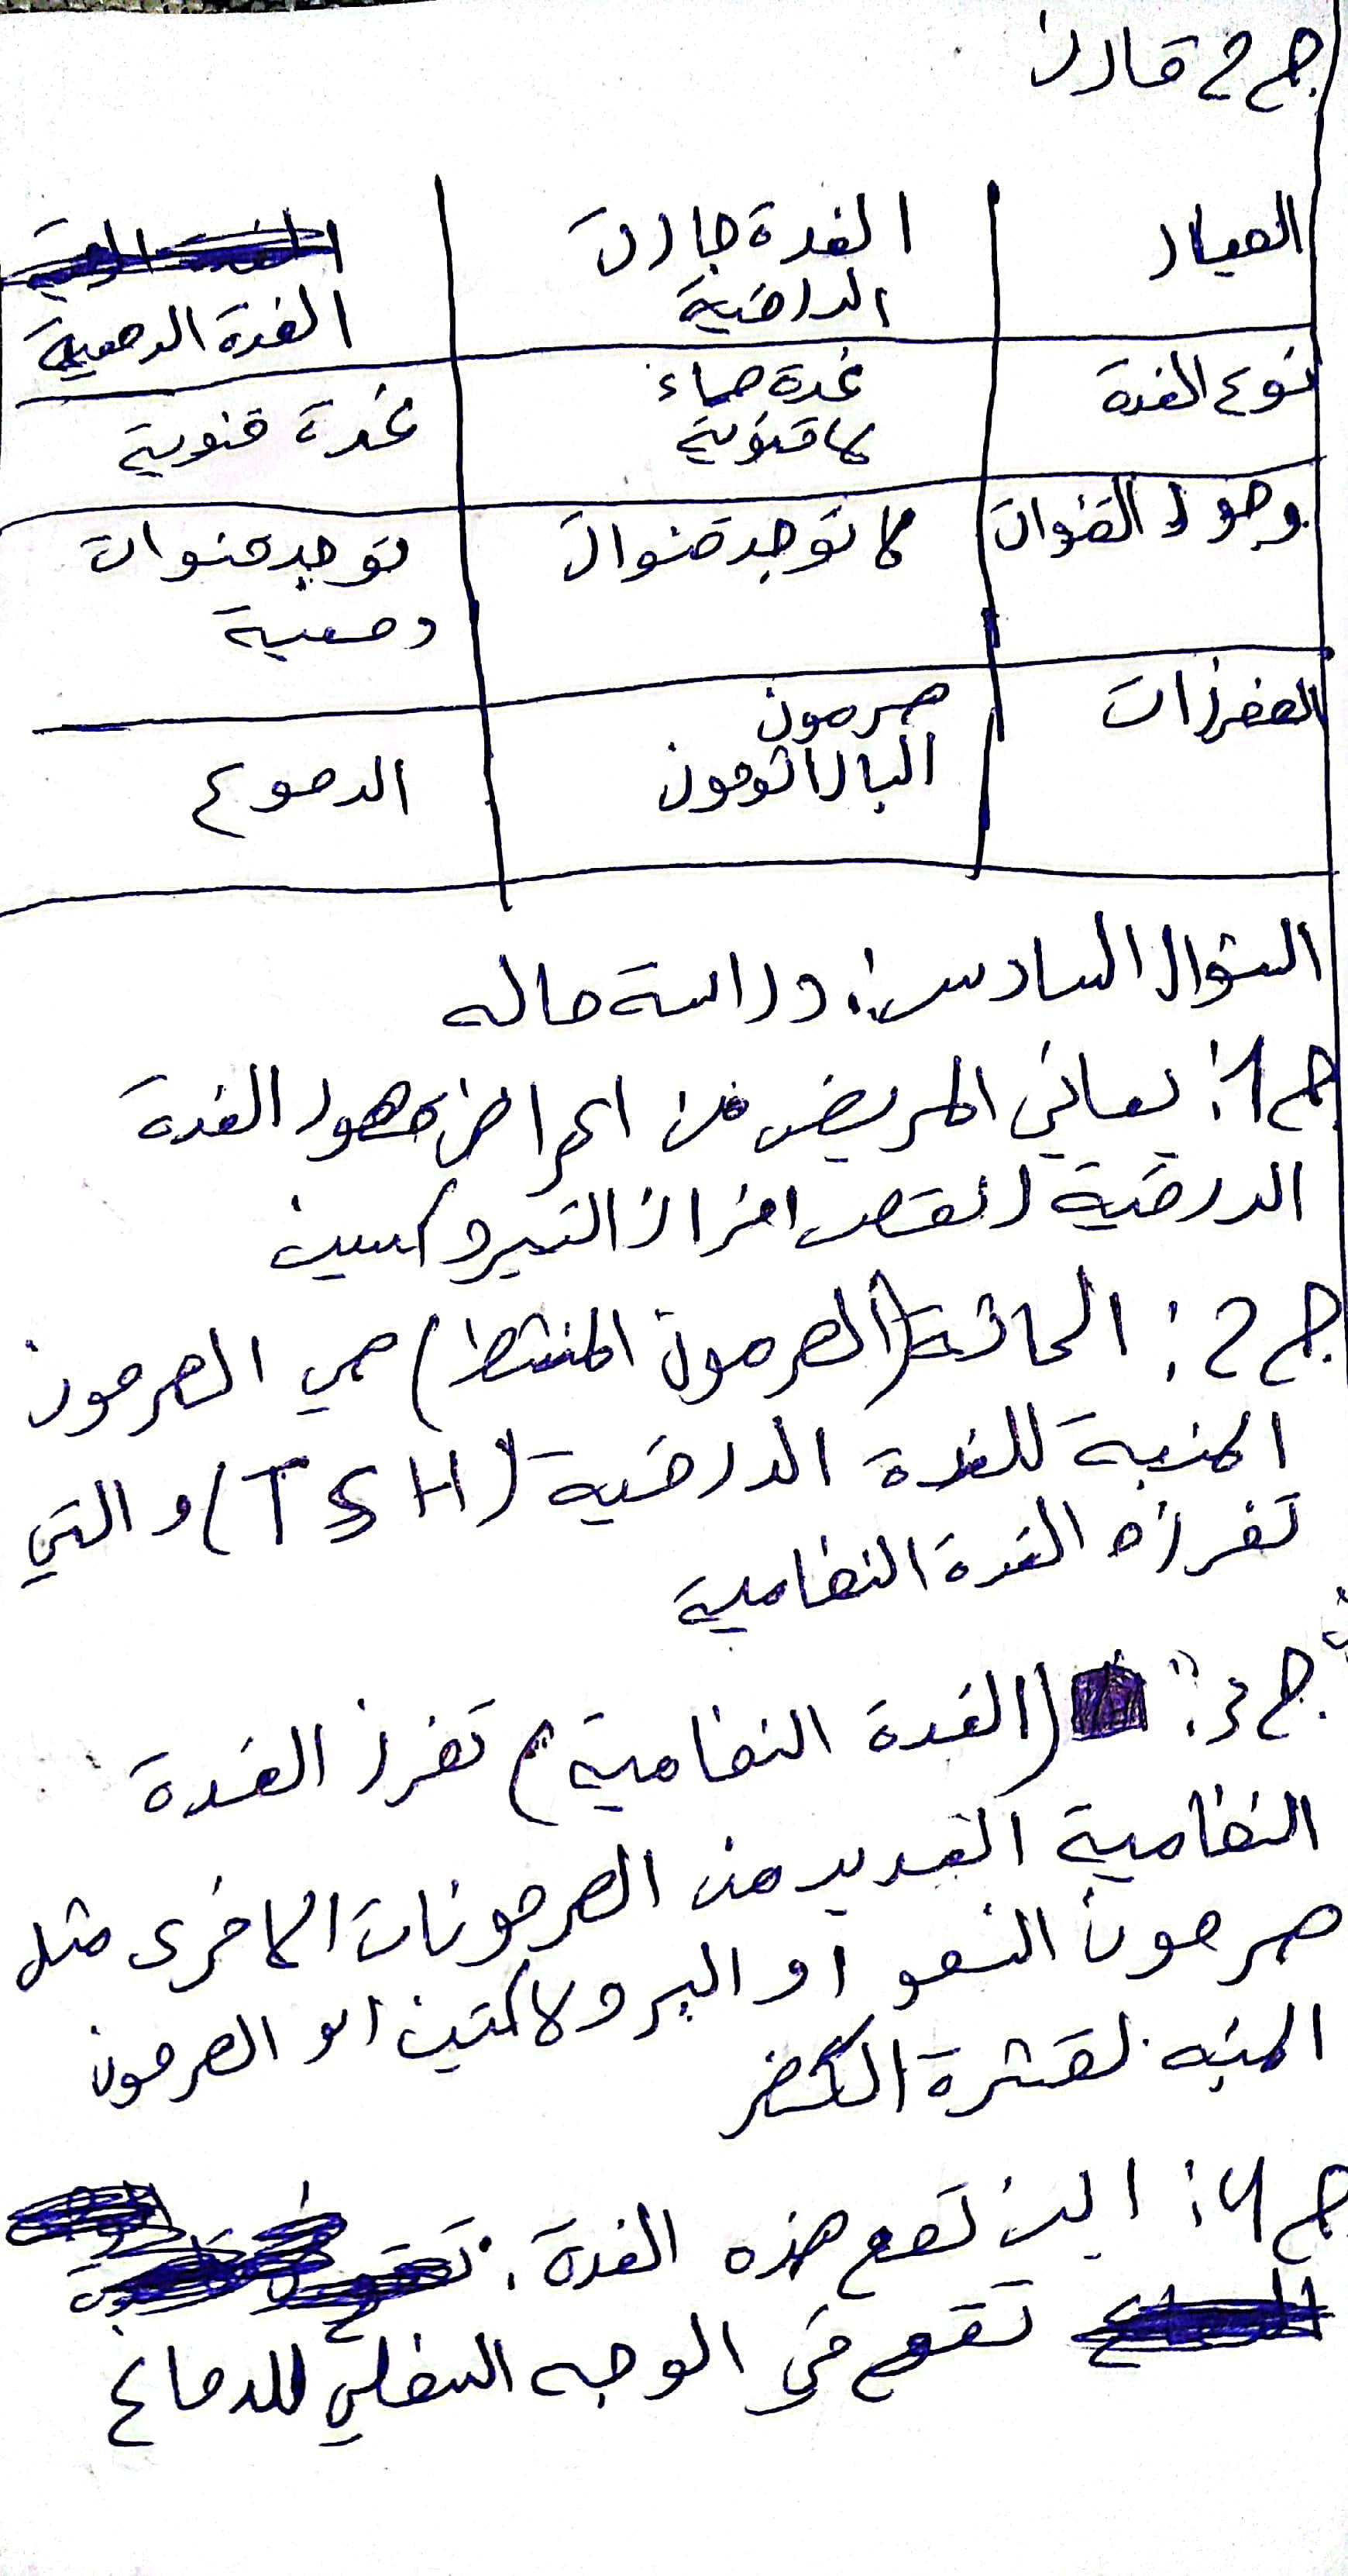 ج 2 قارن
المعيار
الغدة جارات الدراقية
الغدة الدمعية
نوع الغدة
غدة صماء لا قنوية
غدة قنوية
وجود القنوات
لا توجد قنوات
توجد قنوات دمعية
المفرزات
هرمون الباراثومون
الدموع
السؤال السادس: دراسة حاله
ج1: يعاني المريض من اعراض قصور الغدة
الدرقية لنقص افراز التيروكسين
ج 2: الحاثة (الهرمون المنشط) هي الهرمون
المنبهة للغدة الدرقية (TSH) والتي
تفرزه الغدة النخامية
ج3: (الغدة النخامية) تفرز الغدة
النخامية العديد من الهرمونات الاخرى مثل
هرمون النمو او البرولاكتين او الهرمون
المنبه لقشرة الكظر
ج4: اين تقع هذه الغدة:
تقع في الوجه السفلي للدماغ